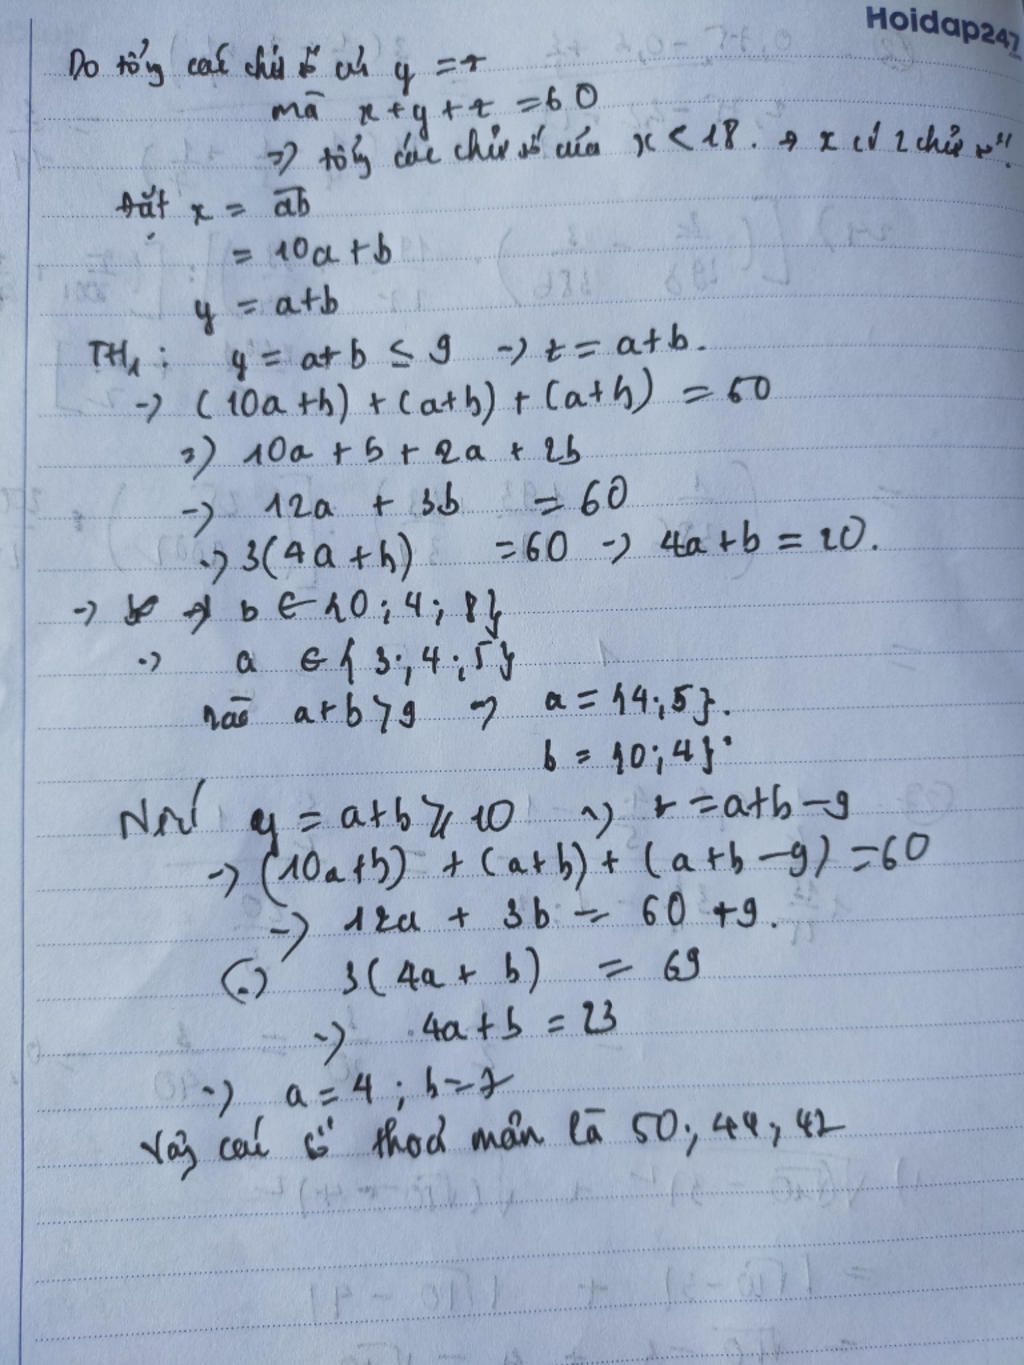 Hoidap247
Do tổng các chữ số của y = z
mà x + y + z = 60
=> tổng các chữ số của x < 18. → x có 2 chữ số.
Đặt x = ab
= 10a + b
y = a+b
TH1 : y = a+b ≤ 9 → z = a+b.
→ (10a+b) + (a+b) + (a+b) = 60
=> 10a + b + 2a + 2b
→ 12a + 3b = 60
→ 3(4a+b) = 60 → 4a+b = 20.
→ → b ∈ {0; 4; 8}
→ a ∈ {3; 4; 5}
a+b > 9 → a = {4; 5}.
b = {0; 4}
Nếu y = a+b ≥ 10 → z = a+b-9
→ (10a+b) + (a+b) + (a+b-9) = 60
→ 12a + 3b = 60 + 9.
3(4a + b) = 69
→ 4a + b = 23
→ a = 4 ; b = 7
Vậy các số thoả mãn là 50; 44; 47